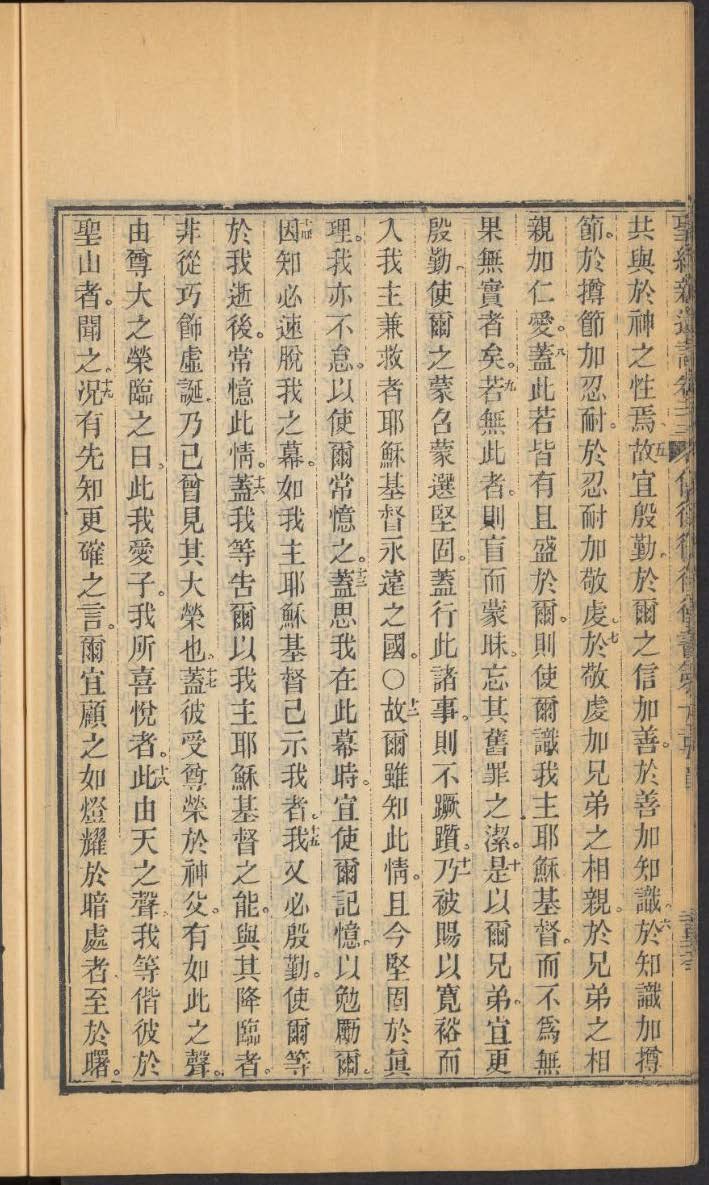 共與於神之性焉。五故宜殷勤、於爾之信加善。於善加知識。六於知識加撙
節。於撙節加忍耐。於忍耐加敬虔。七於敬虔加兄弟之相親。於兄弟之相
親加仁愛。八蓋此若皆有且盛於爾。則使爾識我主耶穌基督。而不為無
果無實者矣。九若無此者。則盲而蒙昧。忘其舊罪之潔。十是以爾兄弟。宜更
殷勤、使爾之蒙召蒙選堅固。蓋行此諸事。則不蹶躓。十一乃被賜以寬裕而
入我主兼救者耶穌基督永遠之國。〇十二故爾雖知此情。且今堅固於眞
理。我亦不怠。以使爾常憶之。十三蓋思我在此幕時。宜使爾記憶。以勉勵爾。
十四因知必速脫我之幕。如我主耶穌基督己示我者。十五我又必殷勤。使爾等
於我逝後。常憶此情。十六蓋我等吿爾以我主耶穌基督之能。與其降臨者。
非從巧飾虛誕。乃已曾見其大榮也。十七蓋彼受尊榮於神父。有如此之聲。
由尊大之榮臨之曰、此我愛子。我所喜悅者。十八此由天之聲、我等偕彼於
聖山者。聞之。十九况有先知更確之言。爾宜顧之如燈耀於暗處者至於曙。